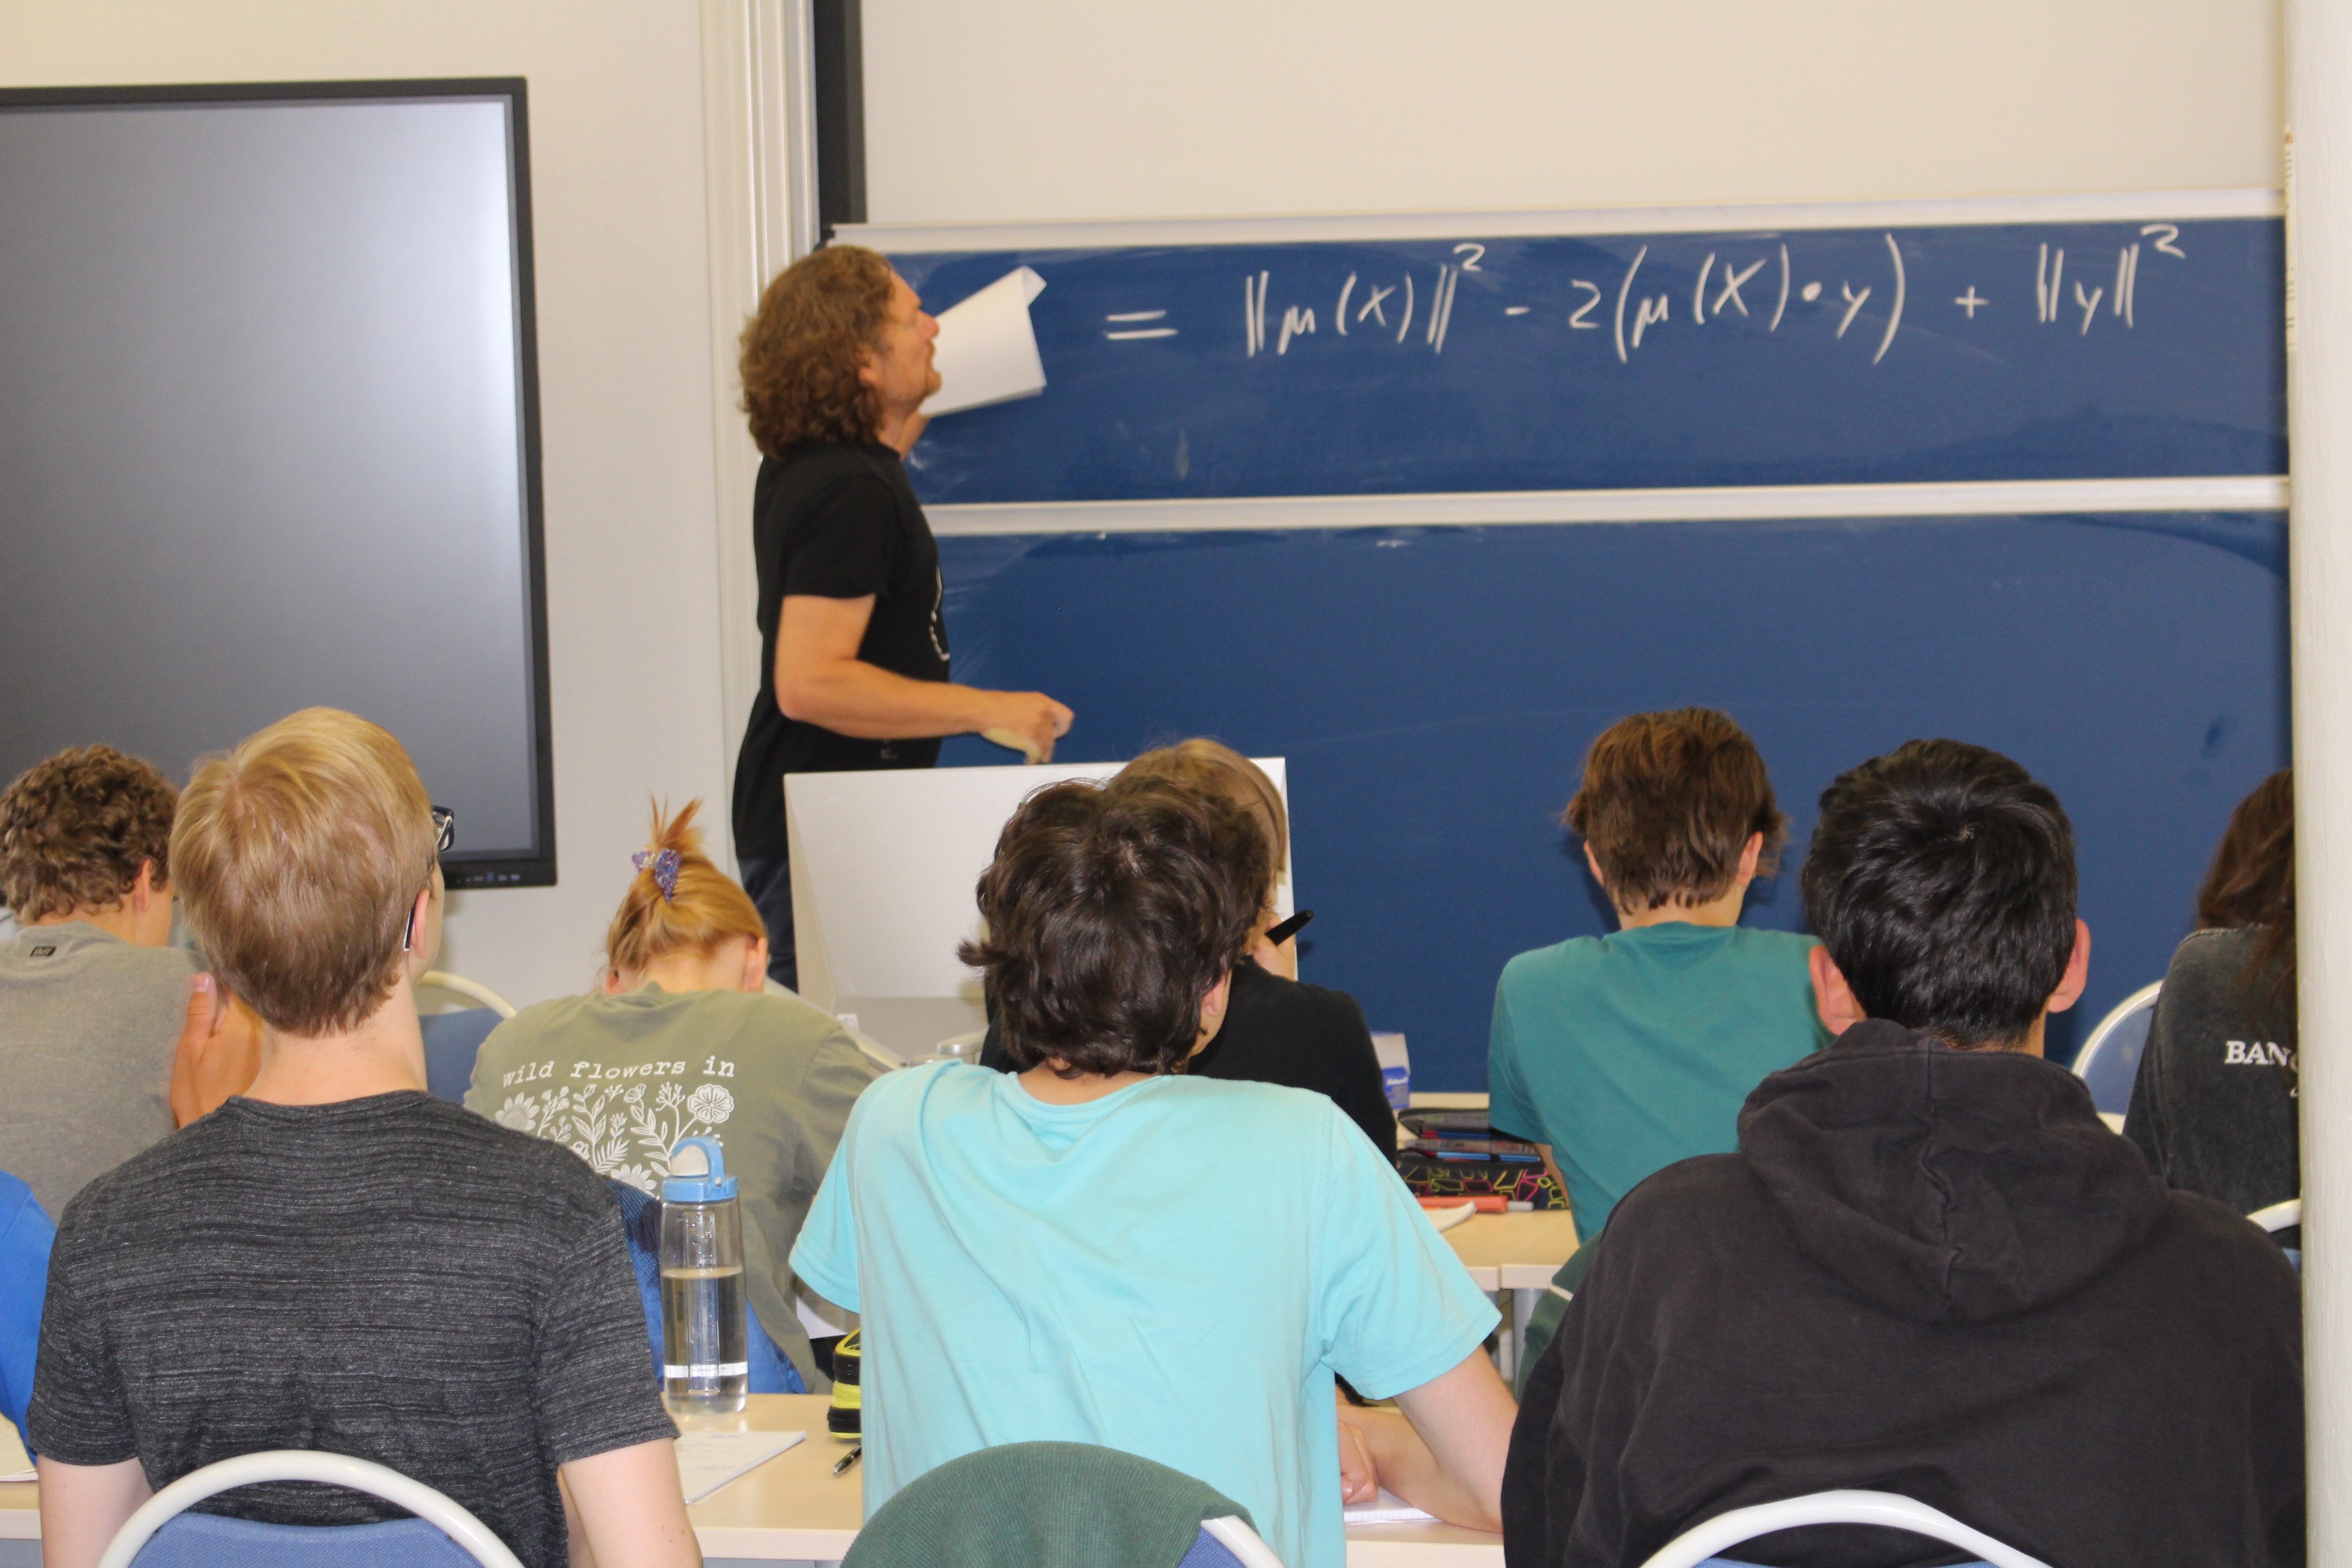 = ‖μ(X)‖² - 2(μ(X)•y) + ‖y‖²
wild flowers in